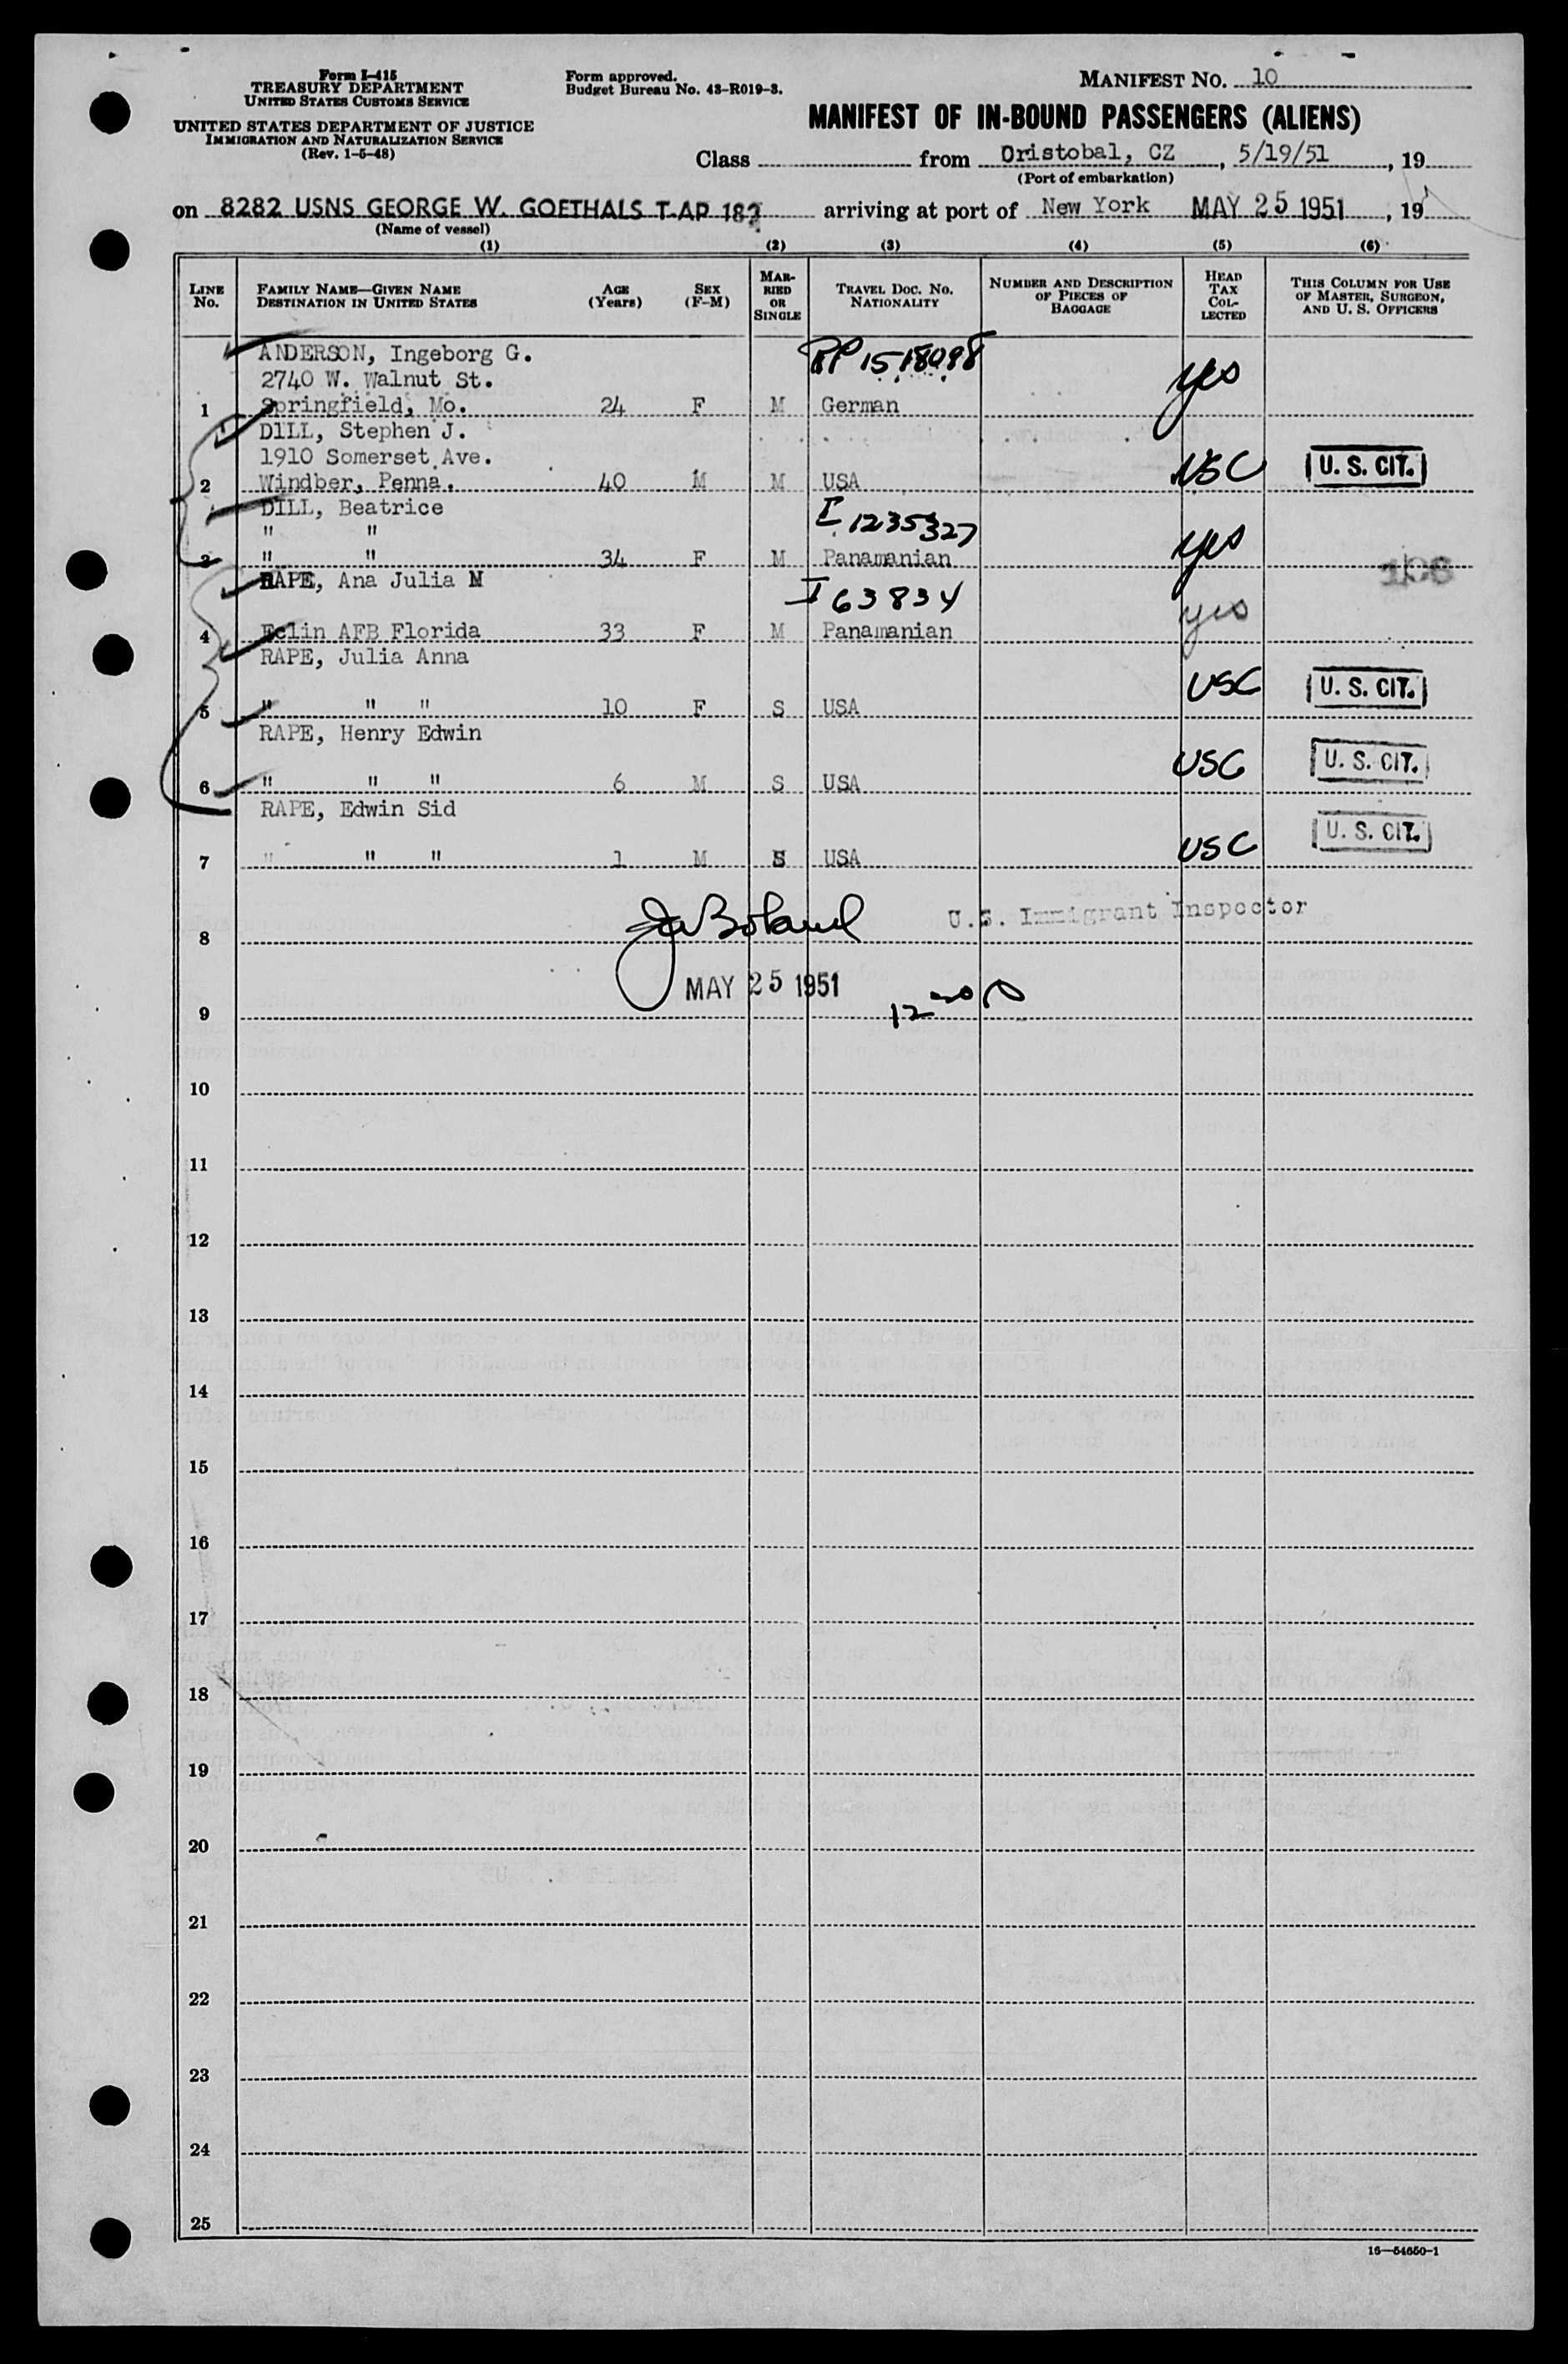 Form I-415
TREASURY DEPARTMENT
UNITED STATES CUSTOMS SERVICE
UNITED STATES DEPARTMENT OF JUSTICE
IMMIGRATION AND NATURALIZATION SERVICE
(Rev. 1-5-48)
Form approved.
Budget Bureau No. 43-R019-3.
MANIFEST NO. 10
MANIFEST OF IN-BOUND PASSENGERS (ALIENS)
Class from Cristobal, CZ , 5/19/51 , 19
(Port of embarkation)
on 8282 USNS GEORGE W. GOETHALS T-AP 182 arriving at port of New York MAY 25 1951 , 19
(Name of vessel)
(1) (2) (3) (4) (5) (6)
LINE No. FAMILY NAME—GIVEN NAME DESTINATION IN UNITED STATES AGE (Years) SEX (F-M) MARRIED OR SINGLE TRAVEL DOC. NO. NATIONALITY NUMBER AND DESCRIPTION OF PIECES OF BAGGAGE HEAD TAX COLLECTED THIS COLUMN FOR USE OF MASTER, SURGEON, AND U. S. OFFICERS
ANDERSON, Ingeborg G. RP 1518098
2740 W. Walnut St. yes
1 Springfield, Mo. 24 F M German
DILL, Stephen J.
1910 Somerset Ave.
2 Windber, Penna. 40 M M USA USC U. S. CIT.
DILL, Beatrice I 1235327
" "
3 " " 34 F M Panamanian yes
RAPE, Ana Julia M I 63834
4 Eclin AFB Florida 33 F M Panamanian yes
RAPE, Julia Anna
5 " " " 10 F S USA USC U. S. CIT.
RAPE, Henry Edwin
6 " " " 6 M S USA USC U. S. CIT.
RAPE, Edwin Sid
7 " " " 1 M S USA USC U. S. CIT.
8 U.S. Immigrant Inspector
MAY 25 1951
9
10
11
12
13
14
15
16
17
18
19
20
21
22
23
24
25
16—54650-1